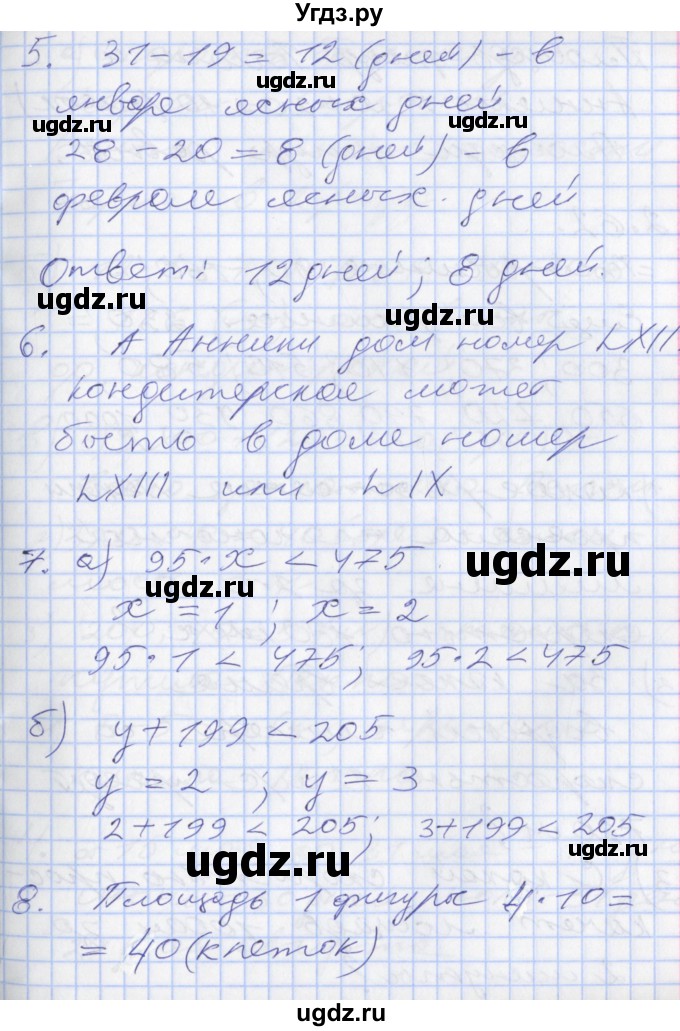 Угдз.ру
5. 31 - 19 = 12 (дней) - в
январе ясных дней
28 - 20 = 8 (дней) - в
феврале ясных дней
Ответ: 12 дней; 8 дней.
6. А Анники дом номер LXII.
Кондитерская может
быть в доме номер
LXIII или LIX
7. а) 95 · x < 475
x = 1 ; x = 2
95 · 1 < 475; 95 · 2 < 475
б) y + 199 < 205
y = 2 ; y = 3
2 + 199 < 205; 3 + 199 < 205
8. Площадь 1 фигуры 4 · 10 =
= 40 (клеток)
ugdz.ru
ugdz.ru
ugdz.ru
ugdz.ru
ugdz.ru
ugdz.ru
ugdz.ru
ugdz.ru
ugdz.ru
ugdz.ru
ugdz.ru
ugdz.ru